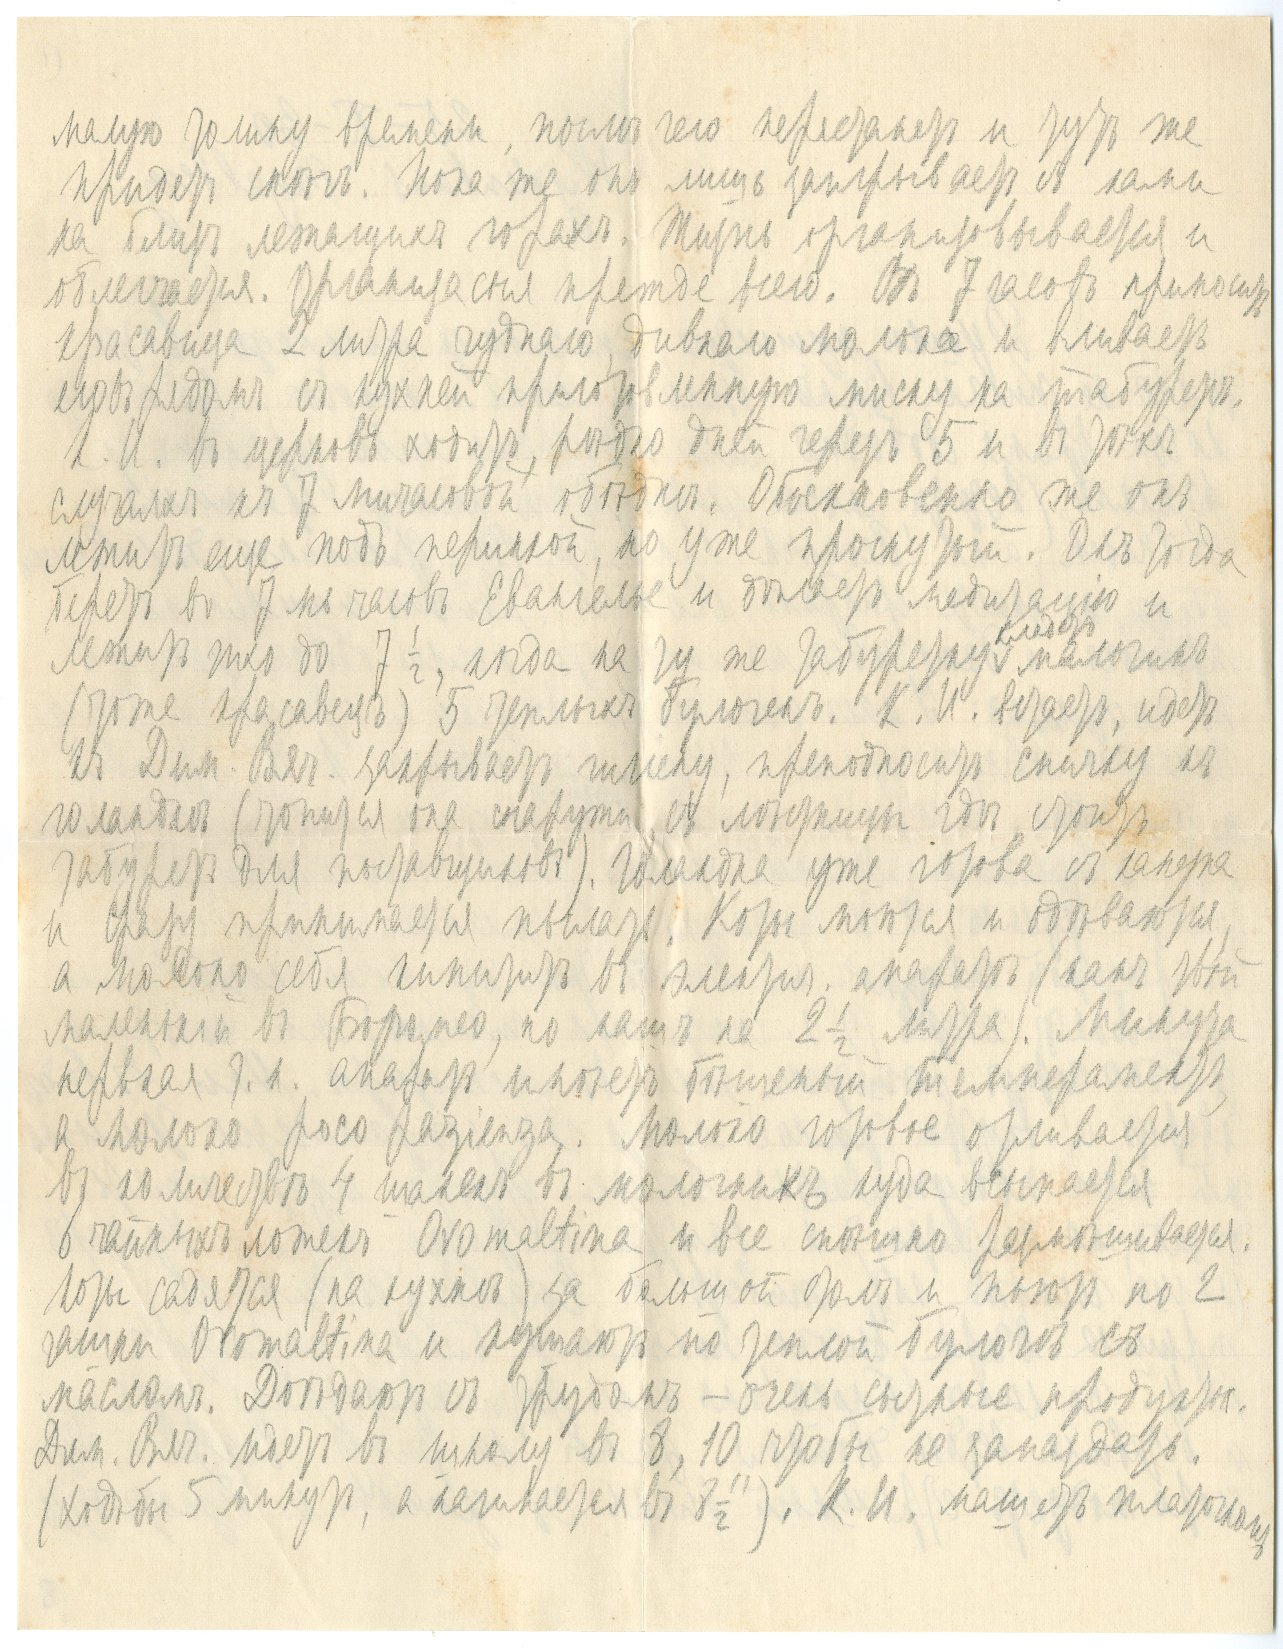 малую толику времени, послѣ чего перестанетъ и тутъ же
придетъ снѣгъ. Пока же онъ лишь заигрываетъ съ нами
на близъ лежащихъ горахъ. Жизнь организовывается и
облегчается. Организасiя прежде всего. Въ 7 часовъ приноситъ
красавица 2 литра чуднаго, дивнаго молока и вливаетъ
рядомъ съ кухней приготовленную миску на табуретъ.
К. И. въ церковь ходитъ рѣдко дней черезъ 5 и въ тѣхъ
случаяхъ къ 7 мичасовой обѣднѣ. Обыкновенно же онъ
лежитъ еще подъ периной, но уже проснутый. Онъ тогда
беретъ въ 7 мь часовъ Евангелье и дѣлаетъ медитацію и
лежитъ тихо до 7 ½, когда на ту же табуретку кладетъ малочикъ
(тоже красавецъ) 5 теплыхъ булочекъ. К. И. встаетъ, идетъ
къ Дим. Вяч. закрываетъ, преподноситъ спичку къ
голандкѣ (топится она снаружи, съ лѣстницы гдѣ стоитъ
табуретъ для поставщиковъ). Голандка уже готова съ кануна
и сразу принимается пылать. Коты моются и одѣваются,
а молоко себя кипятитъ въ электрич. апаратѣ (какъ твой
маленькій въ Борромео, но нашъ на 2 ½ литра). Минута
первная т.к. апаратъ имѣетъ бѣшеный темпераментъ,
а молоко poco pazienza. Молоко готовое отливается
въ количествѣ 4 чашекъ въ молочникъ куда всыпается
6 чайныхъ ложекъ Ovomaltina и все спѣшно размѣшивается.
Коты садятся (на кухнѣ) за большой столъ и пьютъ по 2
чашки Ovomaltina и кушаютъ по теплой булочкѣ съ
масломъ. Доѣдаютъ съ трудомъ – очень сытные продукты.
Дим. Вяч. идетъ въ школу въ 8,10 чтобы не запаздать.
(ходьбы 5 минутъ, а начинается въ 8 ½"). К. И. машетъ платочкомъ